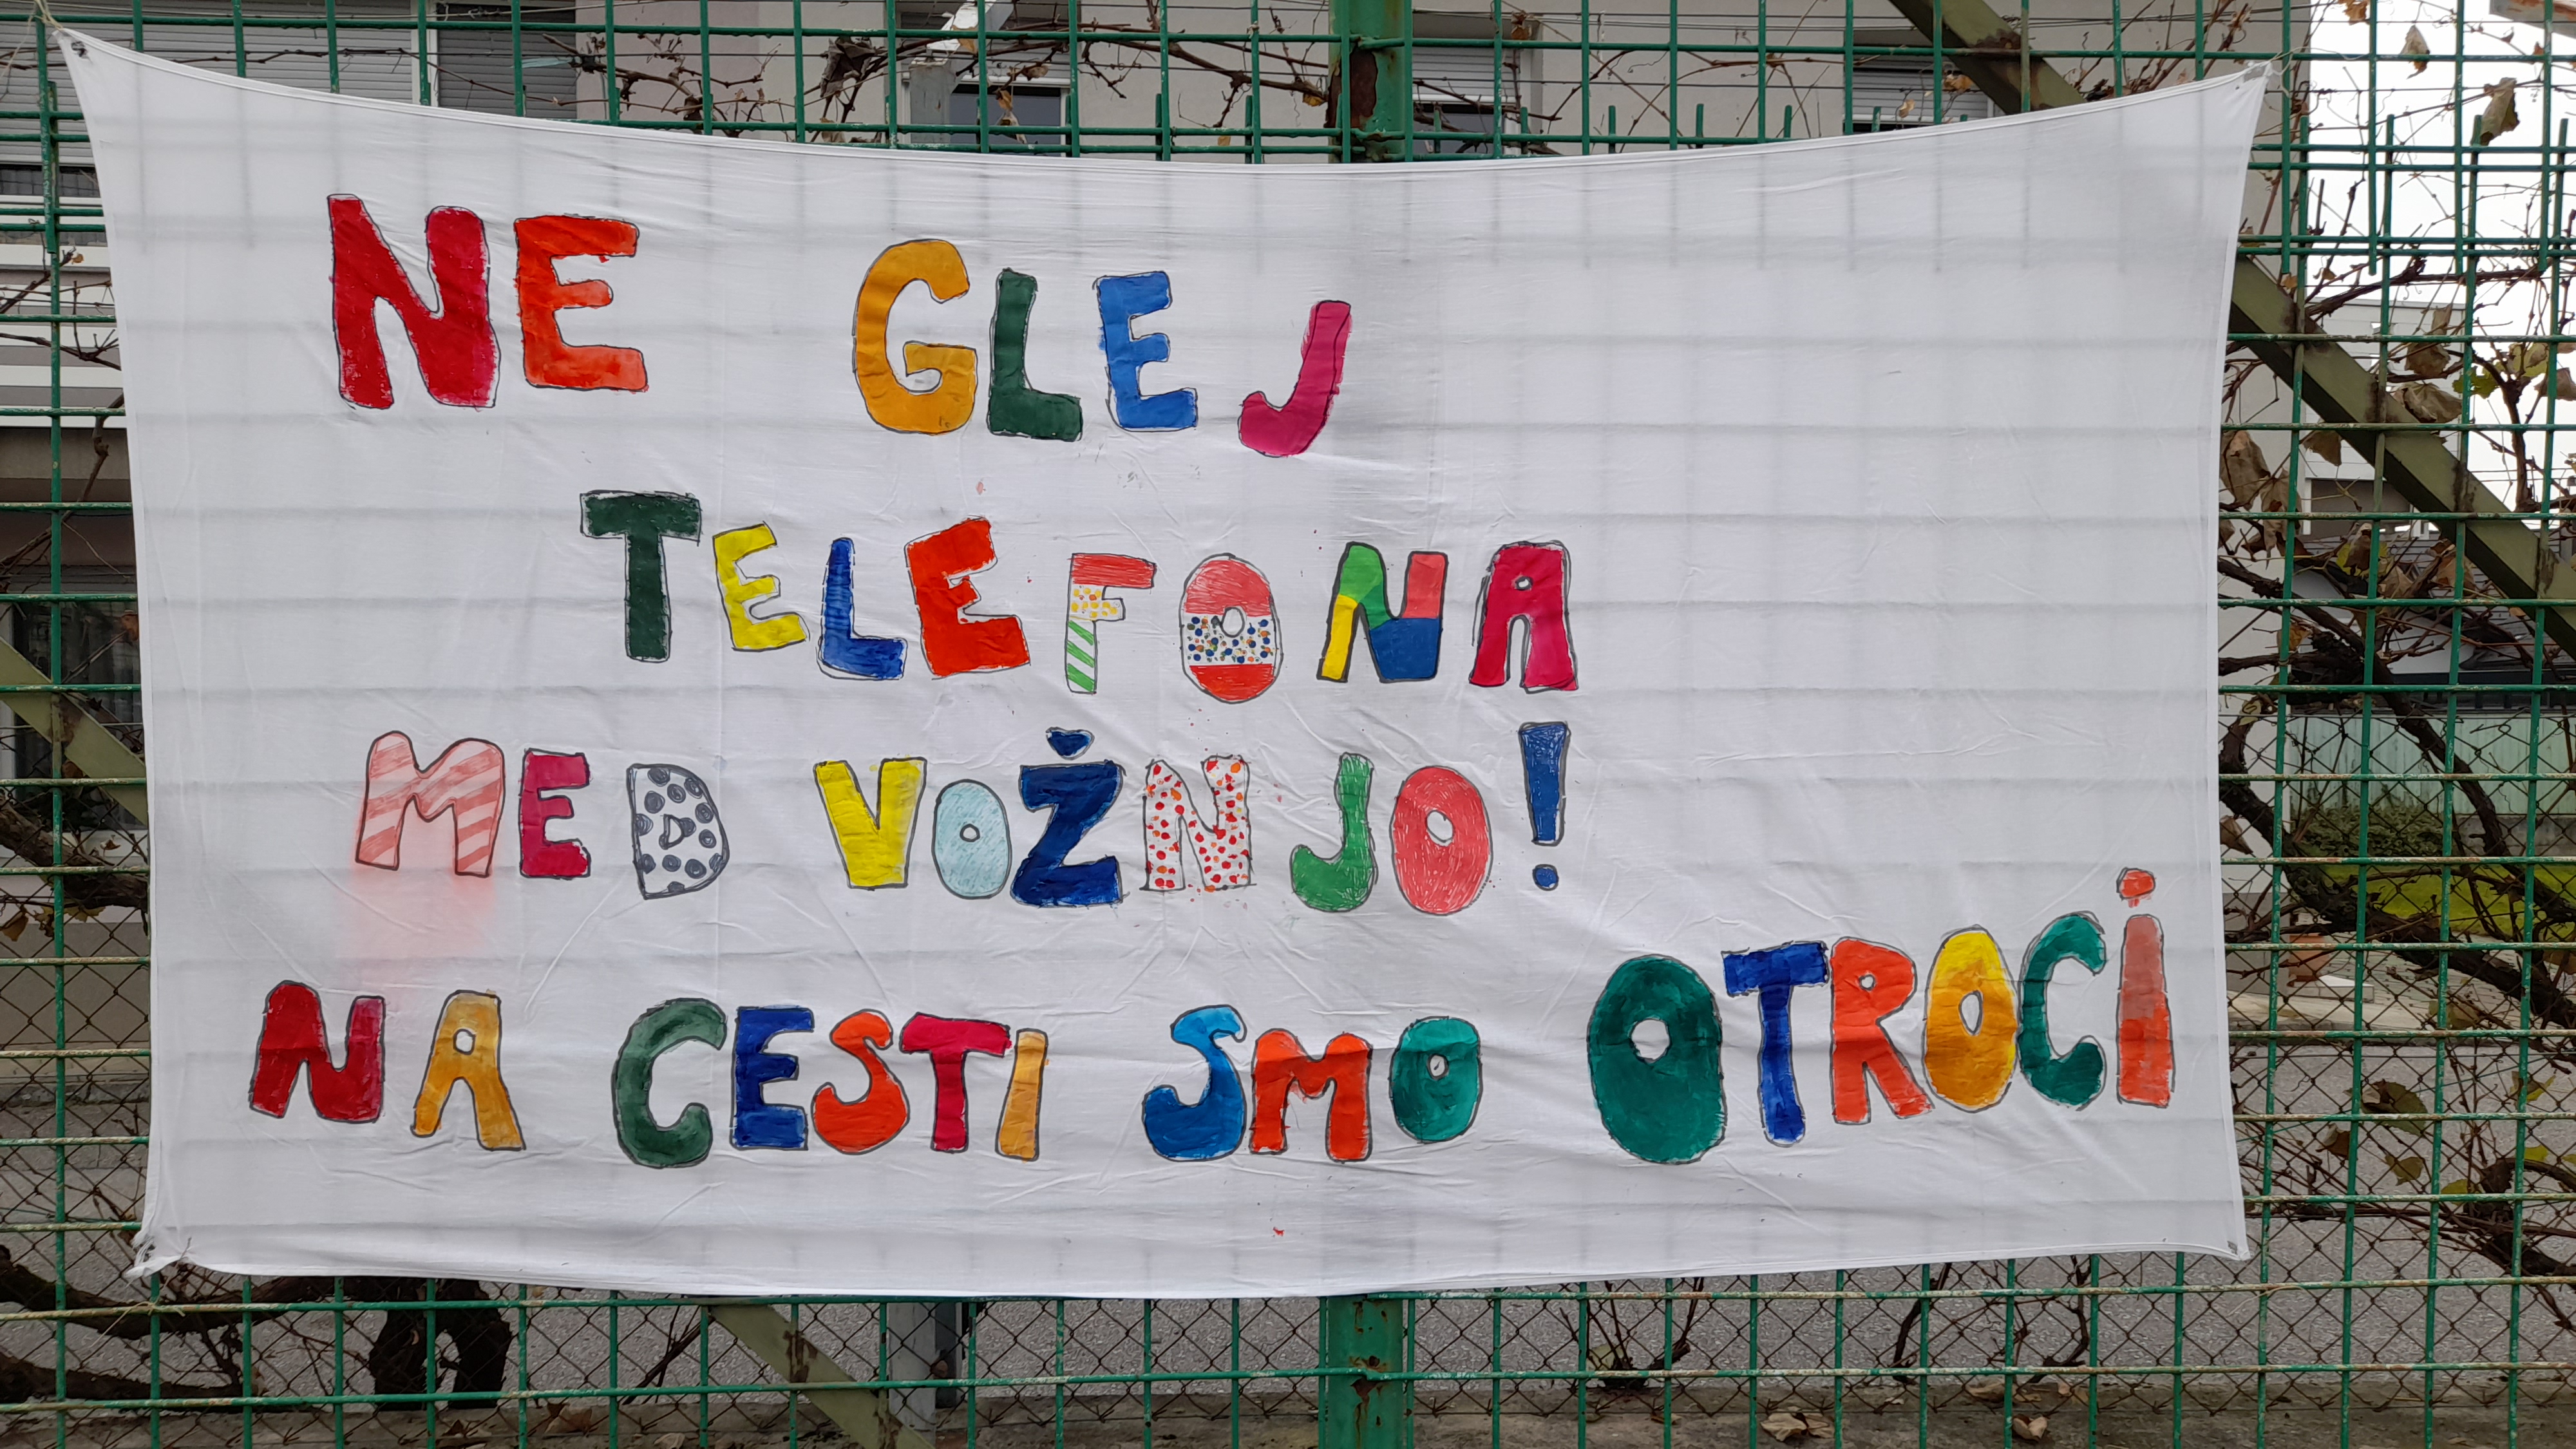 NE GLEJ
TELEFONA
MED VOŽNJO!
NA CESTI SMO OTROCI